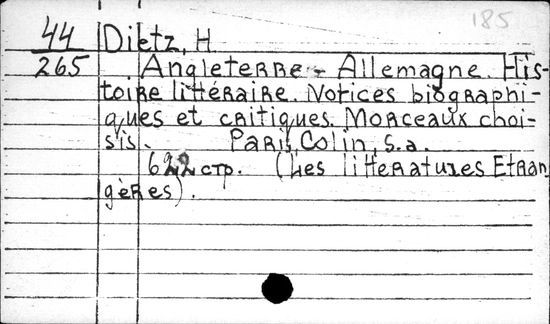 185
44 Dietz, H.
265 Angleterre - Allemagne. His-
toire littéraire. Notices biographi-
ques et critiques. Morceaux choi-
sis. Paris, Colin, s.a.
622 стр. (Les litteratures Etran
gères).